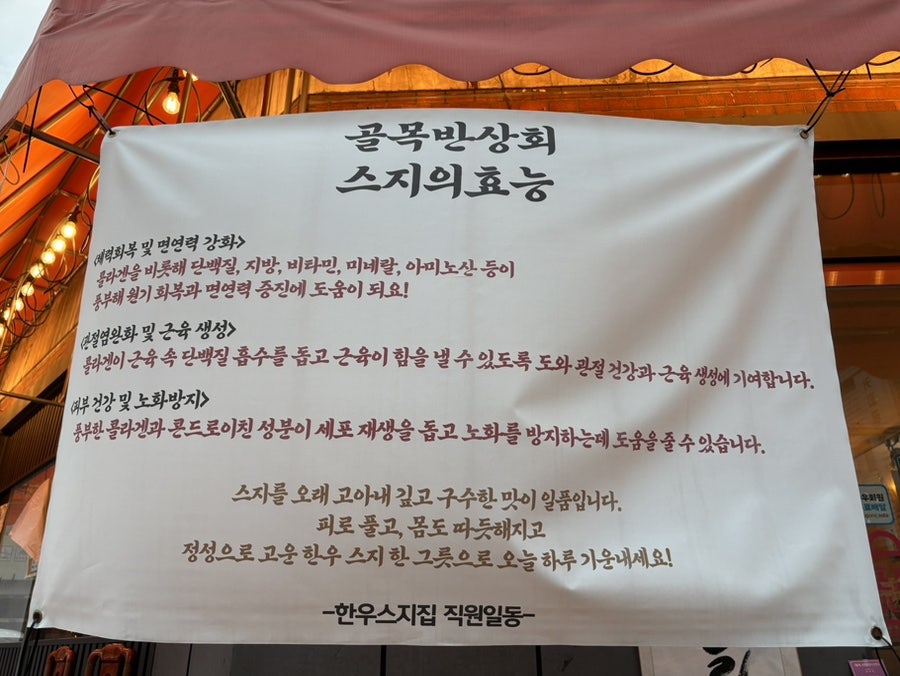 골목반상회
스지의효능
<체력회복 및 면연력 강화>
콜라겐을 비롯해 단백질, 지방, 비타민, 미네랄, 아미노산 등이
풍부해 원기 회복과 면연력 증진에 도움이 되요!
<관절염완화 및 근육 생성>
콜라겐이 근육 속 단백질 흡수를 돕고 근육이 힘을 낼 수 있도록 도와 관절 건강과 근육 생성에 기여합니다.
<피부 건강 및 노화방지>
풍부한 콜라겐과 콘드로이친 성분이 세포 재생을 돕고 노화를 방지하는데 도움을 줄 수 있습니다.
스지를 오래 고아내 깊고 구수한 맛이 일품입니다.
피로 풀고, 몸도 따듯해지고
정성으로 고운 한우 스지 한 그릇으로 오늘 하루 기운내세요!
-한우스지집 직원일동-